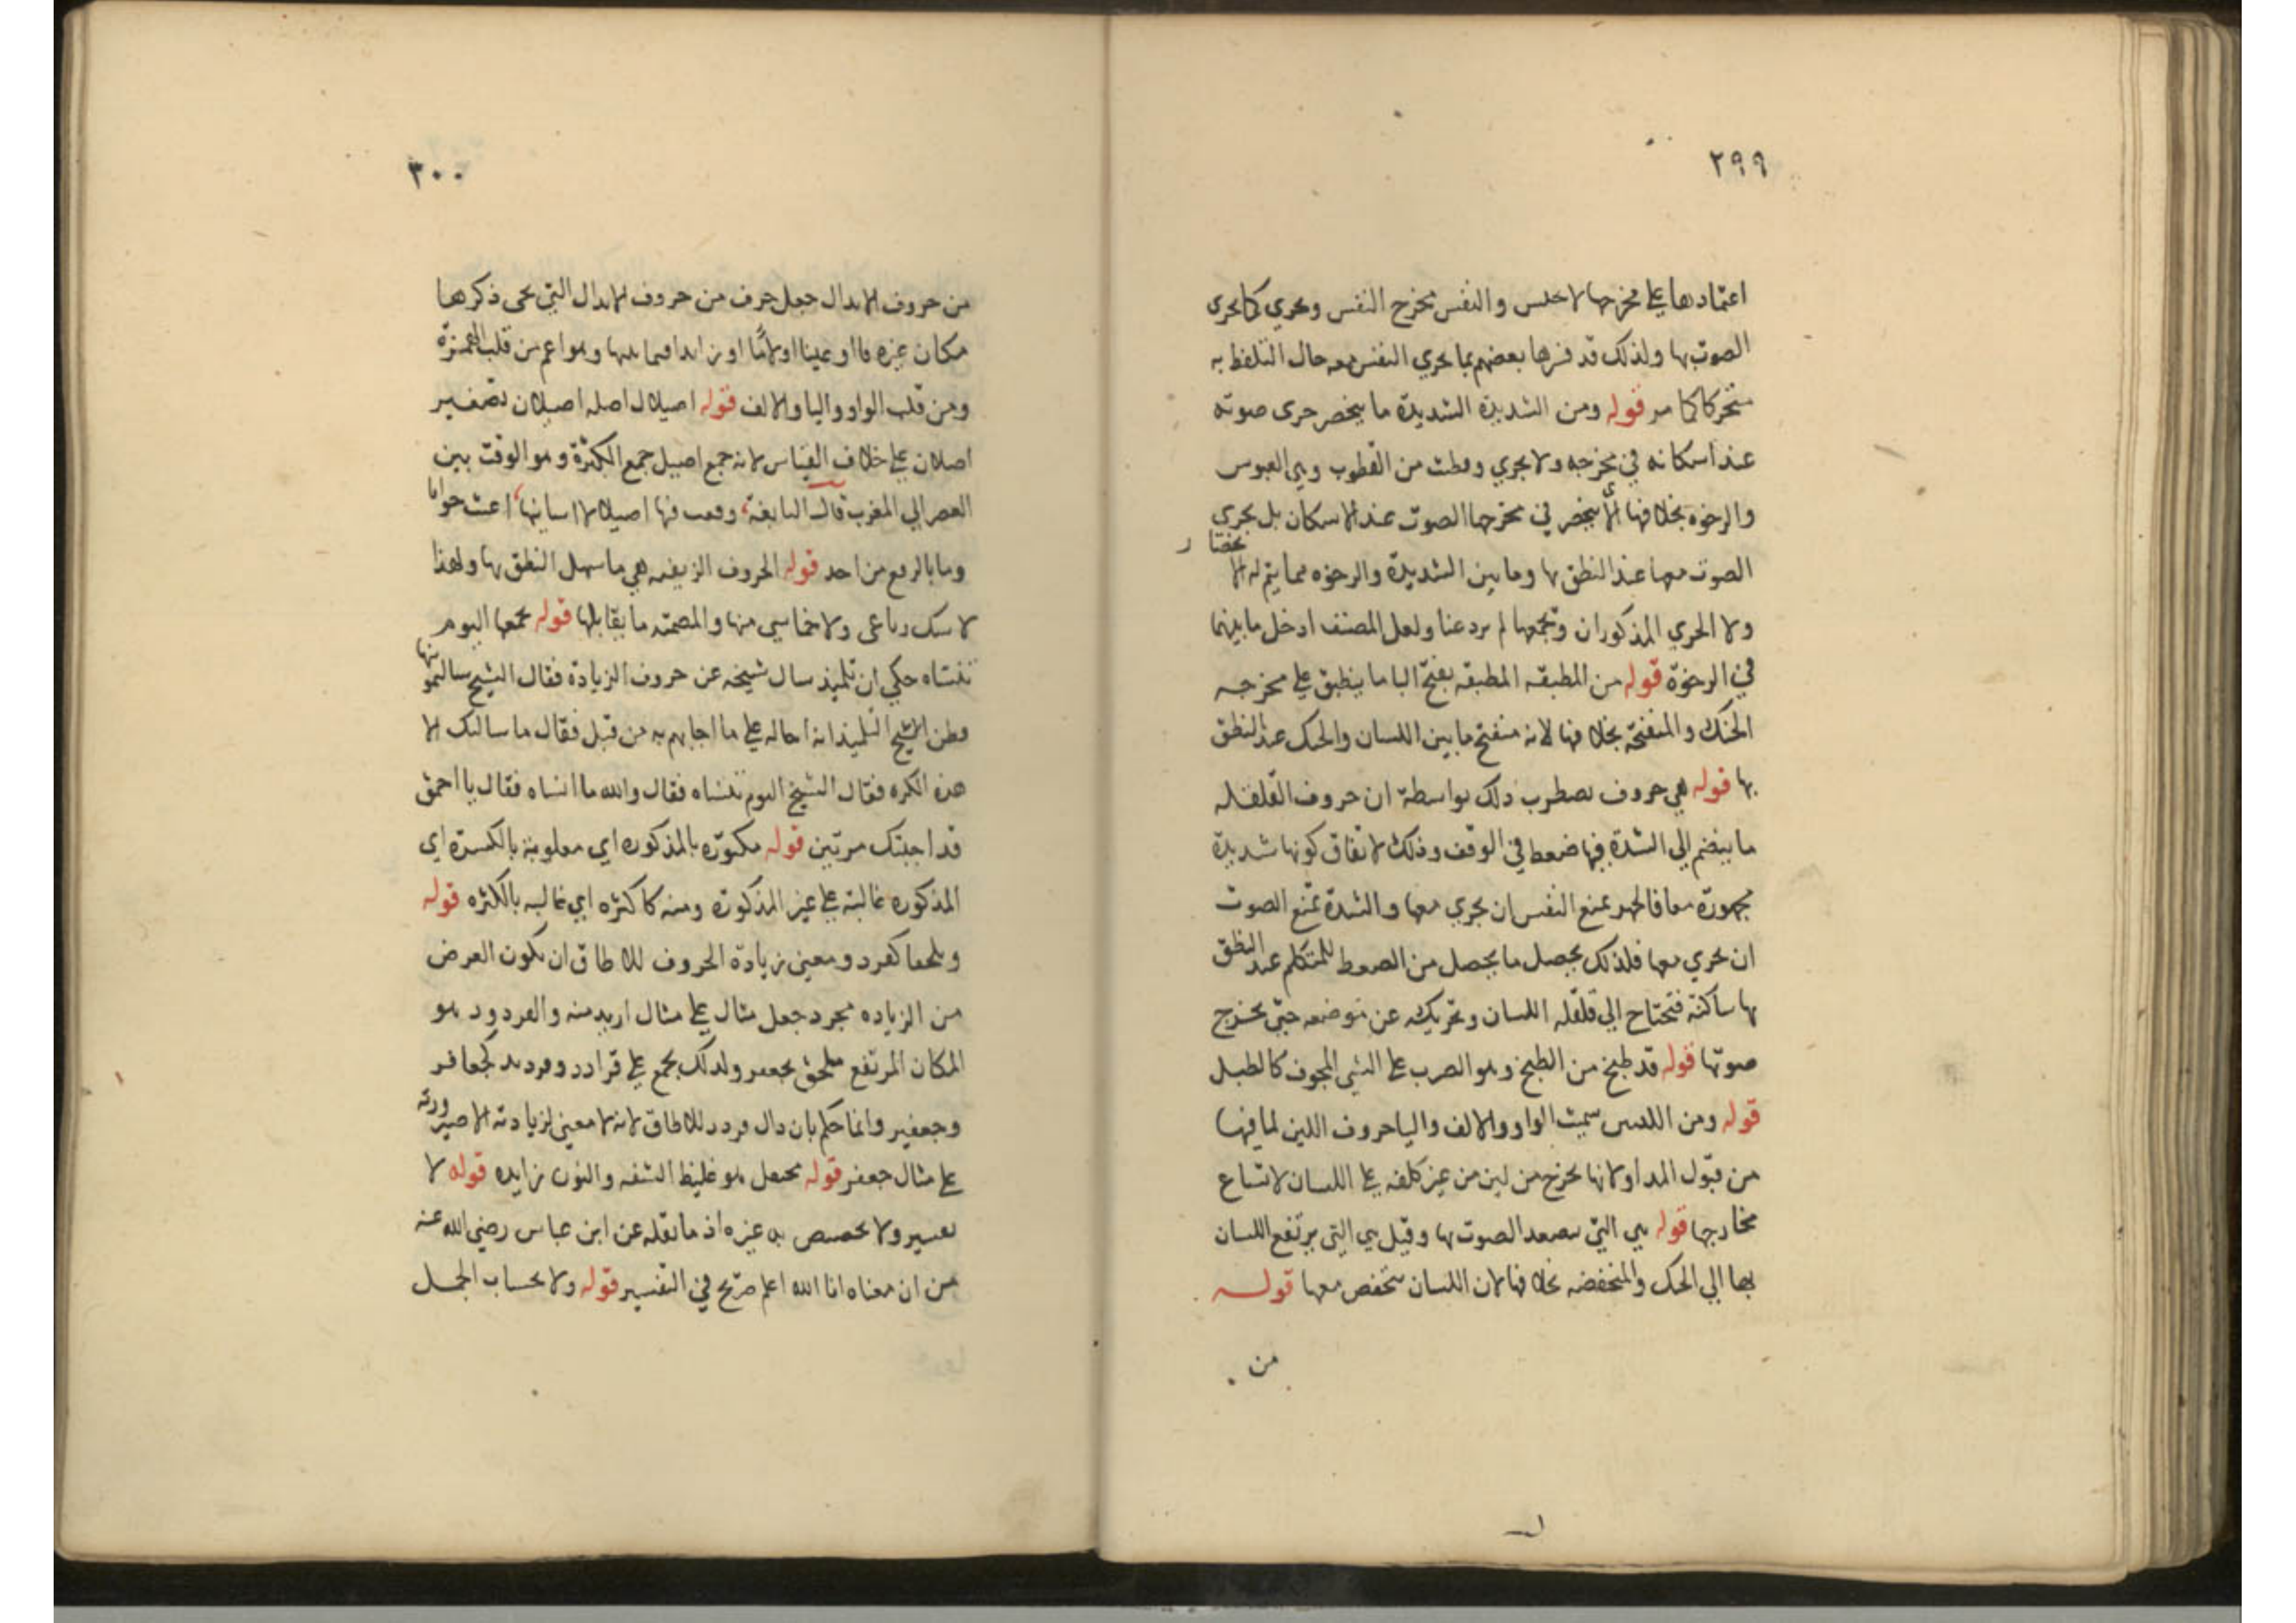 ٢٩٩
اعتمادها على مخرجها لا يحبس والنفس يخرج النفس ويجري كما يجري
الصوت بها ولذلك قد فسرها بعضهم بما يجري النفس معه حال التلفظ به
متحركا كما مر قوله ومن الشديدة الشديدة ما ينحصر جرى صوته
عند اسكانه في مخرجه ولا يجري وقطبت من القطوب وهي العبوس
والرخوه بخلافها اي لا ينحصر في مخرجها الصوت عند الاسكان بل يجري
الصوت معها عند النطق بها وما بين الشديدة والرخوه مما يتم له الانحصار
ولا الجري المذكوران ويجمعها لم يرد عنا ولعل المصنف ادخل ما بينهما
في الرخوة قوله من المطبقه المطبقه بفتح البا ما ينطبق على مخرجه
الحنك والمنفتحة بخلافها لانه منفتح ما بين اللسان والحنك عند النطق
بها قوله هي حروف تضطرب ذلك بواسطة ان حروف القلقله
ما ينضم الى الشدة فيها ضغط في الوقف وذلك لاتفاق كونها شديدة
مجهورة معا فالجهر يمنع النفس ان يجري معها والشدة تمنع الصوت
ان يجري معها فلذلك يحصل ما يحصل من الضغط للمتكلم عند النطق
بها ساكنة فتحتاج الى قلقله اللسان وتحريكه عن موضعه حتى يخرج
صوتها قوله قد طبخ من الطبخ وهو الضرب على الشئ المجوف كالطبل
قوله ومن اللينين سميت الواو والالف واليا حروف اللين لما فيها
من قبول المد اولانها تخرج من لين من غير كلفه على اللسان لاتساع
مخارجها قوله هي التي يصعد الصوت بها وقيل هي التي يرتفع اللسان
بها الى الحنك والمنخفضه بخلافها لان اللسان ينخفض معها قوله
من
٣٠٠
من حروف الابدال جعل حرف من حروف الابدال التي يجى ذكرها
مكان غيره فا او عينا او لاما او زايدا فيما يليها وهو اعم من قلب الهمزة
ومن قلب الواو واليا والالف قوله اصيلال اصله اصيلان تصغير
اصلان على خلاف القياس لانه جمع اصيل جمع الكثرة وهو الوقت بين
العصر الى المغرب قال النابغة، وقفت فيها اصيلالا اسايلها، اعيت جوابا
وما بالربع من احد قوله الحروف الزلقيه هي ما سهل النطق بها ولهذا
لا ينفك رباعى ولا خماسي منها والمصمته ما يقابلها قوله يجمعها اليوم
تنساه حكي ان تلميذ سال شيخه عن حروف الزيادة فقال الشيخ سالتمونيها
فظن الشيخ التلميذ انه احاله على ما اجابهم به من قبل فقال ما سالتك الا
هذه الكره فقال الشيخ اليوم تنساه فقال والله ما انساه فقال يا احمق
قد اجبتك مرتين قوله مكثورة بالمذكوره اي مغلوبة بالكثرة اي
المذكوره غالبة على غير المذكورة ومنه كاكثره اي غالبه بالكثره قوله
وملحقا كقردد ومعنى زيادة الحروف للالحاق ان يكون الغرض
من الزياده مجرد جعل مثال على مثال ازيد منه والقردد هو
المكان المرتفع ملحق بجعفر ولذلك يجمع على قرادد وقريدد كجعافر
وجعيفر وانما حكم بان دال قردد للالحاق لانه لا معنى لزيادته الا صيرورته
على مثال جعفر قوله جحنفل هو غليظ الشفه والنون زايده قوله لا
تفسير ولا تخصيص به غيره اذ ما نقله عن ابن عباس رضي الله عنه
من ان معناه انا الله اعلم صريح في التفسير قوله ولا بحساب الجمل